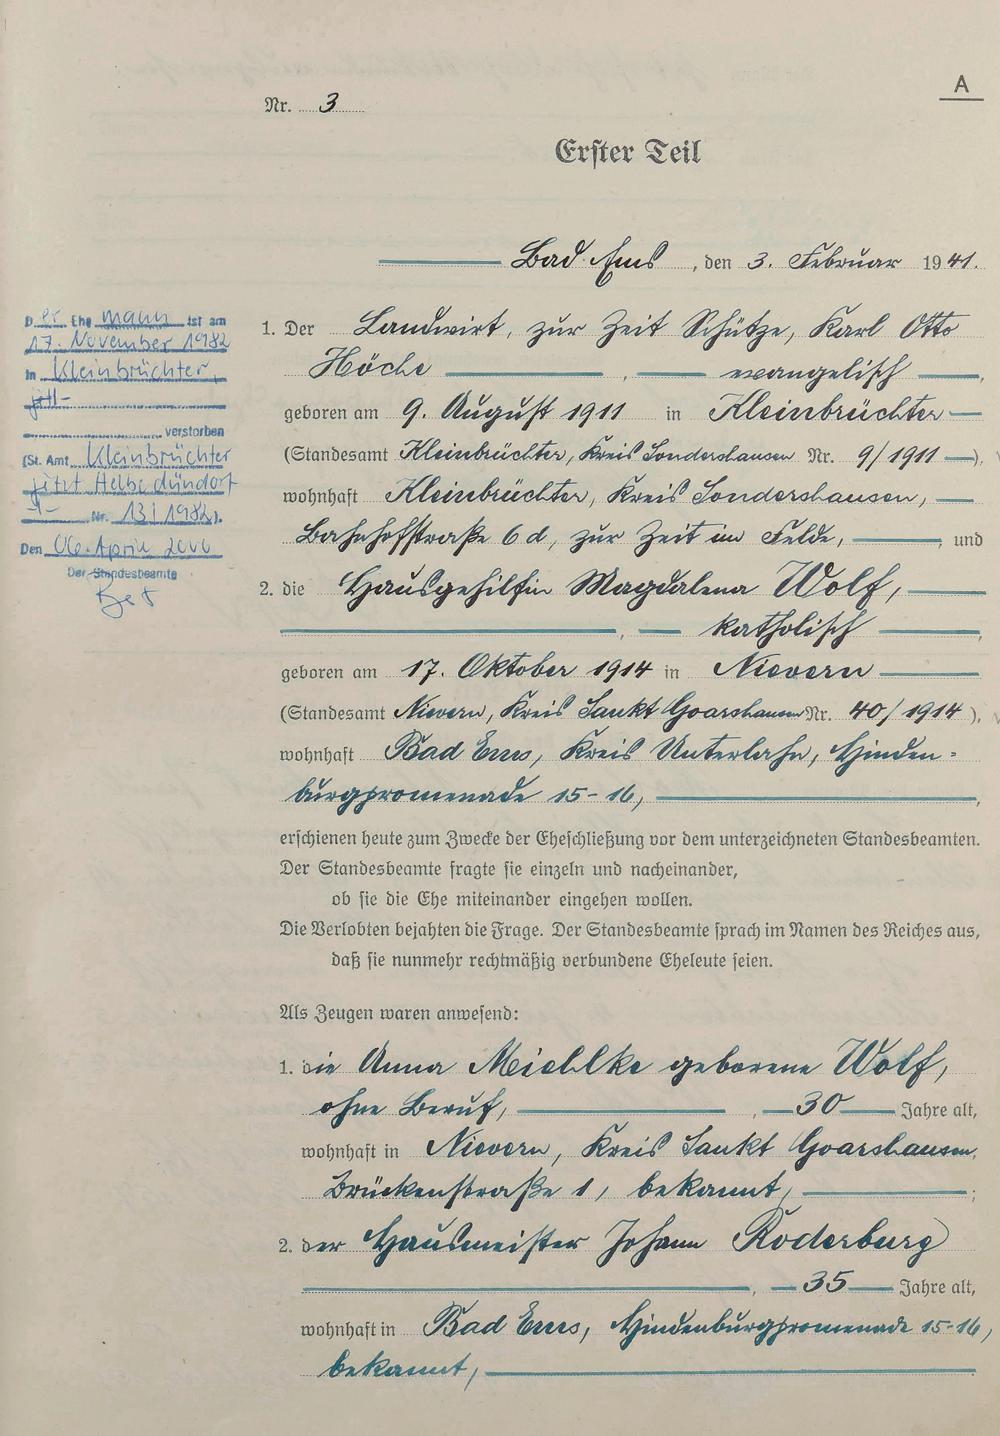 A
Nr. 3
Erster Teil
Bad Ems, den 3. Februar 1941.
D er Ehe mann ist am
17. November 1982
in Kleinbrüchter,
jetzt
verstorben
(St. Amt Kleinbrüchter
jetzt Helbedündorf
Nr. 13/1982).
Den 06. April 2000
Der Standesbeamte
1. Der Landwirt, zur Zeit Schütze, Karl Otto
Höche , evangelisch ,
geboren am 9. August 1911 in Kleinbrüchter
(Standesamt Kleinbrüchter, Kreis Sondershausen Nr. 9/1911 ),
wohnhaft Kleinbrüchter, Kreis Sondershausen,
Bahnhofstraße 6 d, zur Zeit im Felde, , und
2. die Hausgehilfin Magdalena Wolf,
, katholisch ,
geboren am 17. Oktober 1914 in Nievern
(Standesamt Nievern, Kreis Sankt Goarshausen Nr. 40/1914 ),
wohnhaft Bad Ems, Kreis Unterlahn, Hinden-
burgpromenade 15-16, ,
erschienen heute zum Zwecke der Eheschließung vor dem unterzeichneten Standesbeamten.
Der Standesbeamte fragte sie einzeln und nacheinander,
ob sie die Ehe miteinander eingehen wollen.
Die Verlobten bejahten die Frage. Der Standesbeamte sprach im Namen des Reiches aus,
daß sie nunmehr rechtmäßig verbundene Eheleute seien.
Als Zeugen waren anwesend:
1. die Anna Miehlke geborene Wolf,
ohne Beruf, , 30 Jahre alt,
wohnhaft in Nievern, Kreis Sankt Goarshausen,
Brückenstraße 1, bekannt, ;
2. der Hausmeister Johann Roderburg
, 35 Jahre alt,
wohnhaft in Bad Ems, Hindenburgpromenade 15-16,
bekannt,